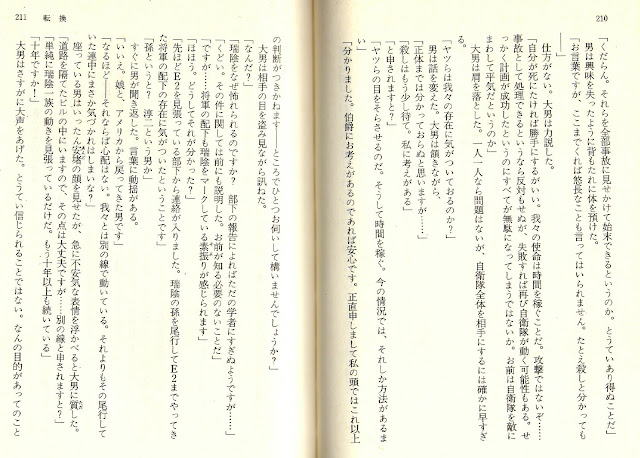 210
「くだらん。それらを全部事故に見せかけて始末できるというのか。とうていあり得ぬことだ」
男は興味を失ったように背もたれに体を預けた。
「お言葉ですが、ここまでくれば悠長なことも言ってはいられません。たとえ殺しと分かっても
――」
仕方がない。大男は力説した。
「自分が死にたければ勝手にするがいい。我々の使命は時間を稼ぐことだ。攻撃ではないぞ……
事故として処理できるというなら反対もせぬが、失敗すれば再び自衛隊が動く可能性もある。せ
っかく計画が成功したというのにすべてが無駄になってしまうではないか。お前は自衛隊を敵に
まわして平気だというのか」
大男は肩を落とした。一人一人なら問題はないが、自衛隊全体を相手にするには確かに早すぎ
る。
「ヤツらは我々の存在に気がついておるのか？」
男は話を変えた。大男は頷きながら、
「正体までは分かっておらぬと思いますが……」
「殺しはもう少し待て。私に考えがある」
「と申されますと？」
「ヤツらの目をそらさせるのだ。そうして時間を稼ぐ。今の情況では、それしか方法があるま
い」
「分かりました。伯爵にお考えがあるのであれば安心です。正直申しまして私の頭ではこれ以上
211 転換
の判断がつきかねます――ところでひとつお伺いして構いませんでしょうか？」
大男は相手の目を盗み見ながら訊ねた。
「なんだ？」
「瑞陰をなぜ怖れられるのですか？　部下の報告によればただの学者にすぎぬようですが……」
「くどい。その件に関しては前にも説明した。お前が知る必要のないことだ」
「ですが……将軍の配下も瑞陰をマークしている素振りが感じられます」
「ほほう。どうしてそれが分かった？」
「先ほどE2を見張っている部下から連絡が入りました。瑞陰の孫を尾行してE2までやってき
た将軍の配下の存在に気がついたということです」
「孫というと？　淳一という男か」
すぐに男が聞き返した。言葉に動揺がある。
「いいえ。娘と、アメリカから戻ってきた男です」
「なるほど――それならば心配はない。我々とは別の線で動いている。それよりもその尾行して
いた連中にまさか気づかれはしまいな？」
座っている男はいったん安堵の顔を見せたが、急に不安気な表情を浮かべると大男に質した。
「道路を隔てたビルの中にいますので、その点は大丈夫ですが……別の線と申されますと？」
「単純に瑞陰一族の動きを見張っているだけだ。もう十年以上も続いている」
「十年ですか！」
大男はさすがに大声をあげた。とうてい信じられることではない。なんの目的があってのこと